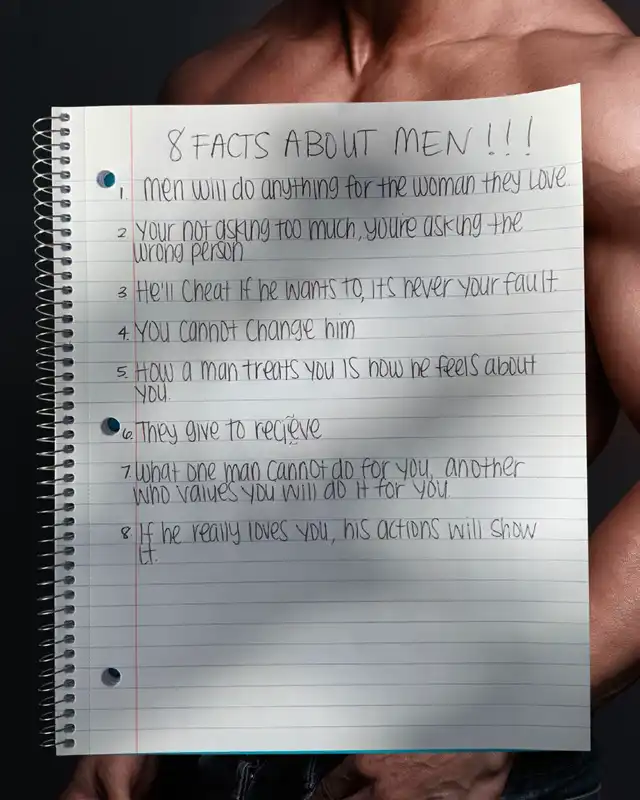 8 FACTS ABOUT MEN !!!
1. Men will do anything for the woman they love.
2 Your not asking too much, you're asking the
wrong person
3 He'll cheat if he wants to, its never your fault
4. You cannot change him
5. How a man treats you is how he feels about
you.
6. They give to recieve
7. What one man cannot do for you, another
who values you will do it for you.
8. If he really loves you, his actions will show
it.